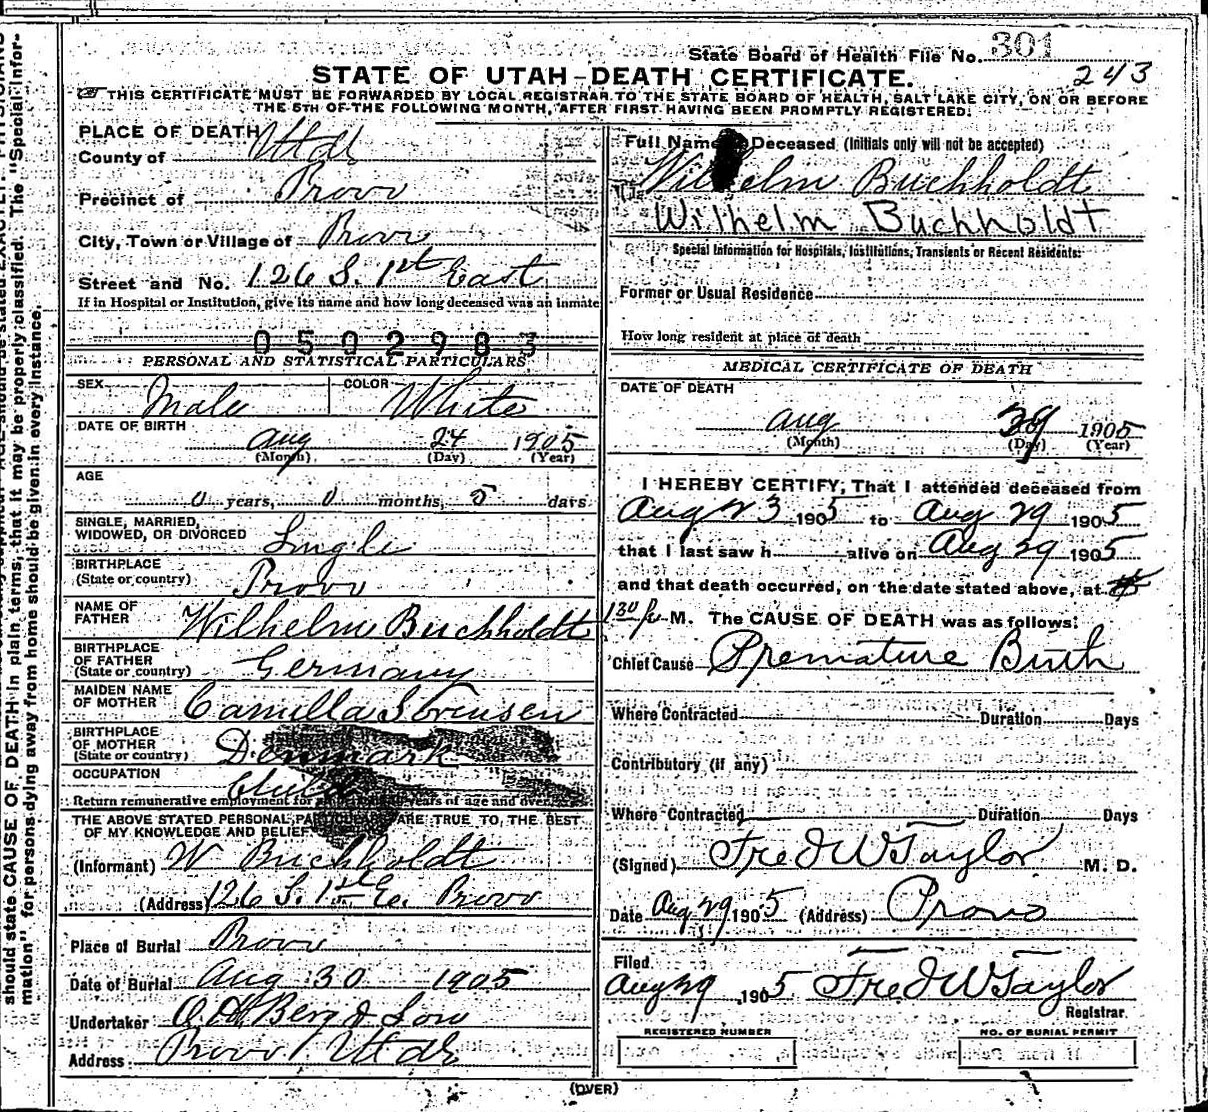 State Board of Health File No. 301
243
STATE OF UTAH-DEATH CERTIFICATE.
THIS CERTIFICATE MUST BE FORWARDED BY LOCAL REGISTRAR TO THE STATE BOARD OF HEALTH, SALT LAKE CITY, ON OR BEFORE
THE 5TH OF THE FOLLOWING MONTH, AFTER FIRST HAVING BEEN PROMPTLY REGISTERED.
PLACE OF DEATH
County of Utah
Precinct of Provo
City, Town or Village of Provo
Street and No. 126 S. 1st East
If in Hospital or Institution, give its name and how long deceased was an inmate
0502983
PERSONAL AND STATISTICAL PARTICULARS
SEX Male COLOR White
DATE OF BIRTH
Aug 24 1905
(Month) (Day) (Year)
AGE
0 years, 0 months, 5 days
SINGLE, MARRIED,
WIDOWED, OR DIVORCED Single
BIRTHPLACE
(State or country) Provo
NAME OF
FATHER Wilhelm Buchholdt
BIRTHPLACE
OF FATHER
(State or country) Germany
MAIDEN NAME
OF MOTHER Camilla Sorensen
BIRTHPLACE
OF MOTHER
(State or country) Denmark
OCCUPATION Child
Return remunerative employment for years of age and over
THE ABOVE STATED PERSONAL PARTICULARS ARE TRUE TO THE BEST
OF MY KNOWLEDGE AND BELIEF
(Informant) W Buchholdt
(Address) 126 S. 1st E. Provo
Place of Burial Provo
Date of Burial Aug 30 1905
Undertaker O. H. Berg & Son
Address Provo Utah
Full Name Deceased (Initials only will not be accepted)
Wilhelm Buchholdt
Wilhelm Buchholdt
Special Information for Hospitals, Institutions, Transients or Recent Residents:
Former or Usual Residence
How long resident at place of death
MEDICAL CERTIFICATE OF DEATH
DATE OF DEATH
Aug 29 1905
(Month) (Day) (Year)
I HEREBY CERTIFY, That I attended deceased from
Aug 23 1905 to Aug 29 1905
that I last saw h alive on Aug 29 1905
and that death occurred, on the date stated above, at
130 p M. The CAUSE OF DEATH was as follows:
Chief Cause Premature Birth
Where Contracted Duration Days
Contributory (if any)
Where Contracted Duration Days
(Signed) Fred W Taylor M. D.
Date Aug 29 1905 (Address) Provo
Filed
Aug 29 1905 Fred W Taylor
Registrar.
REGISTERED NUMBER NO. OF BURIAL PERMIT
(OVER)
should state CAUSE OF DEATH in plain terms, that it may be properly classified. The "Special Infor-
mation" for persons dying away from home should be given in every instance.